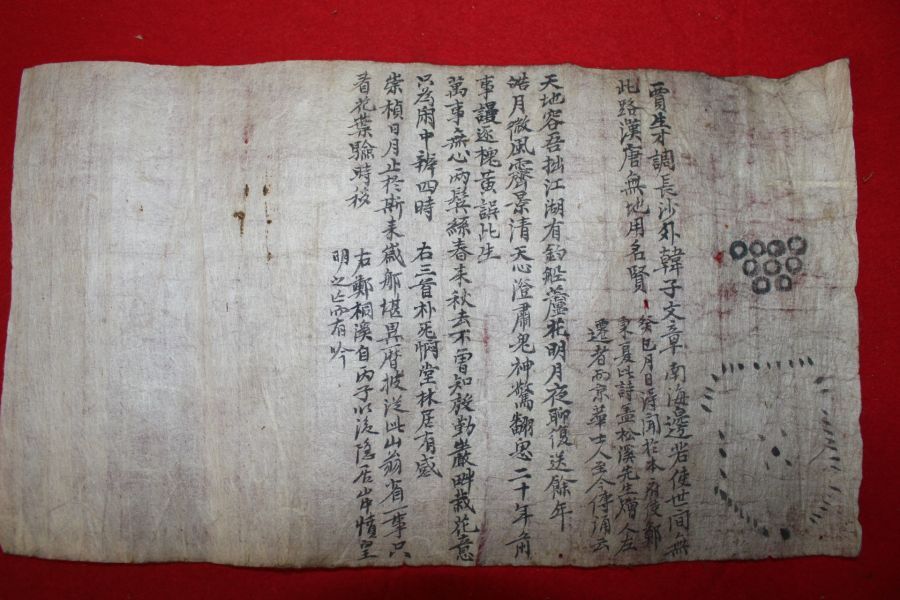 賈生才調長沙外韓子文章南海邊若使世間無
此路漢唐無地用名賢
癸巳月日得聞於本府使鄭
東夏此詩盖松溪先生贈人左
遷者而京華士人至今傳誦云
天地容吾拙江湖有釣船蘆花明月夜聊復送餘年
皓月微風霽景清天心澄肅鬼神驚翻思二十年前
事謾逐槐黃誤此生
萬事無心兩鬂絲春来秋去不曾知殷勤巖畔栽花意
只為閑中辨四時 右三首朴死憫堂林居有感
崇楨日月止於斯来歲那堪異曆披從此山翁省一事只
看花葉驗時移
右鄭桐溪自丙子以後隐居憤皇
明之亡而有吟